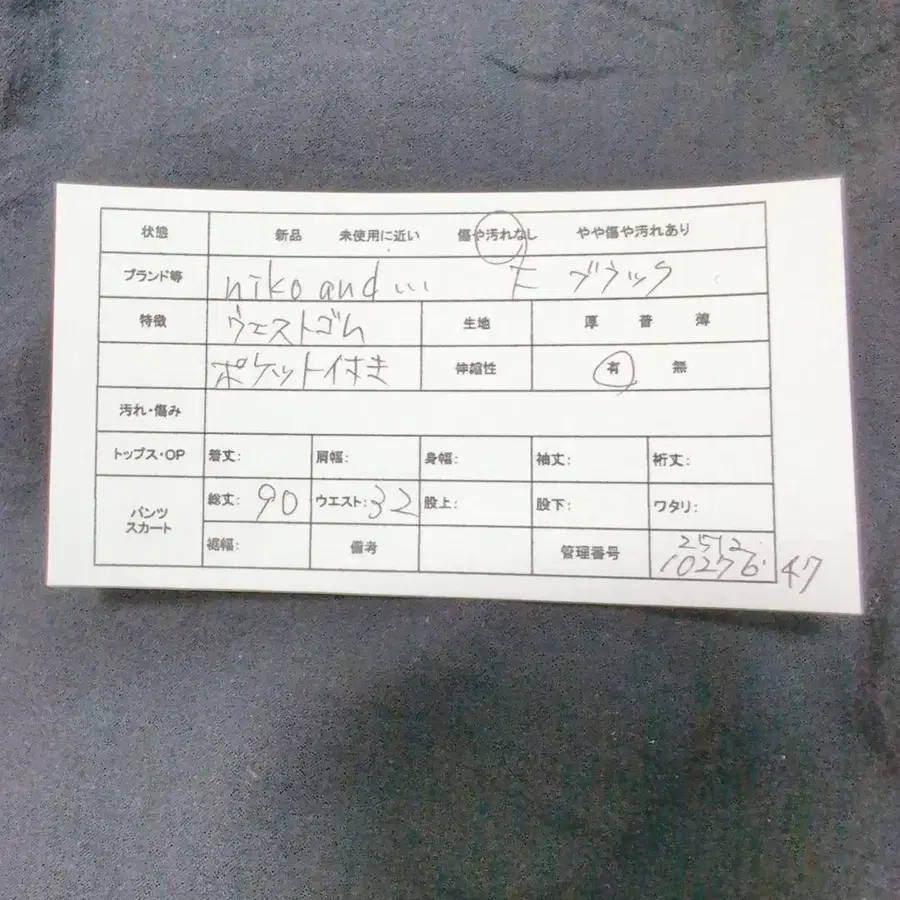 状態 新品 未使用に近い 傷や汚れなし やや傷や汚れあり
ブランド等 niko and ... F ブラック
特徴 ウエストゴム 生地 厚 普 薄
ポケット付き 伸縮性 有 無
汚れ・傷み
トップス・OP 着丈: 肩幅: 身幅: 袖丈: 裄丈:
パンツ スカート 総丈: 90 ウエスト: 32 股上: 股下: ワタリ:
裾幅: 備考 管理番号 2512
10276 47